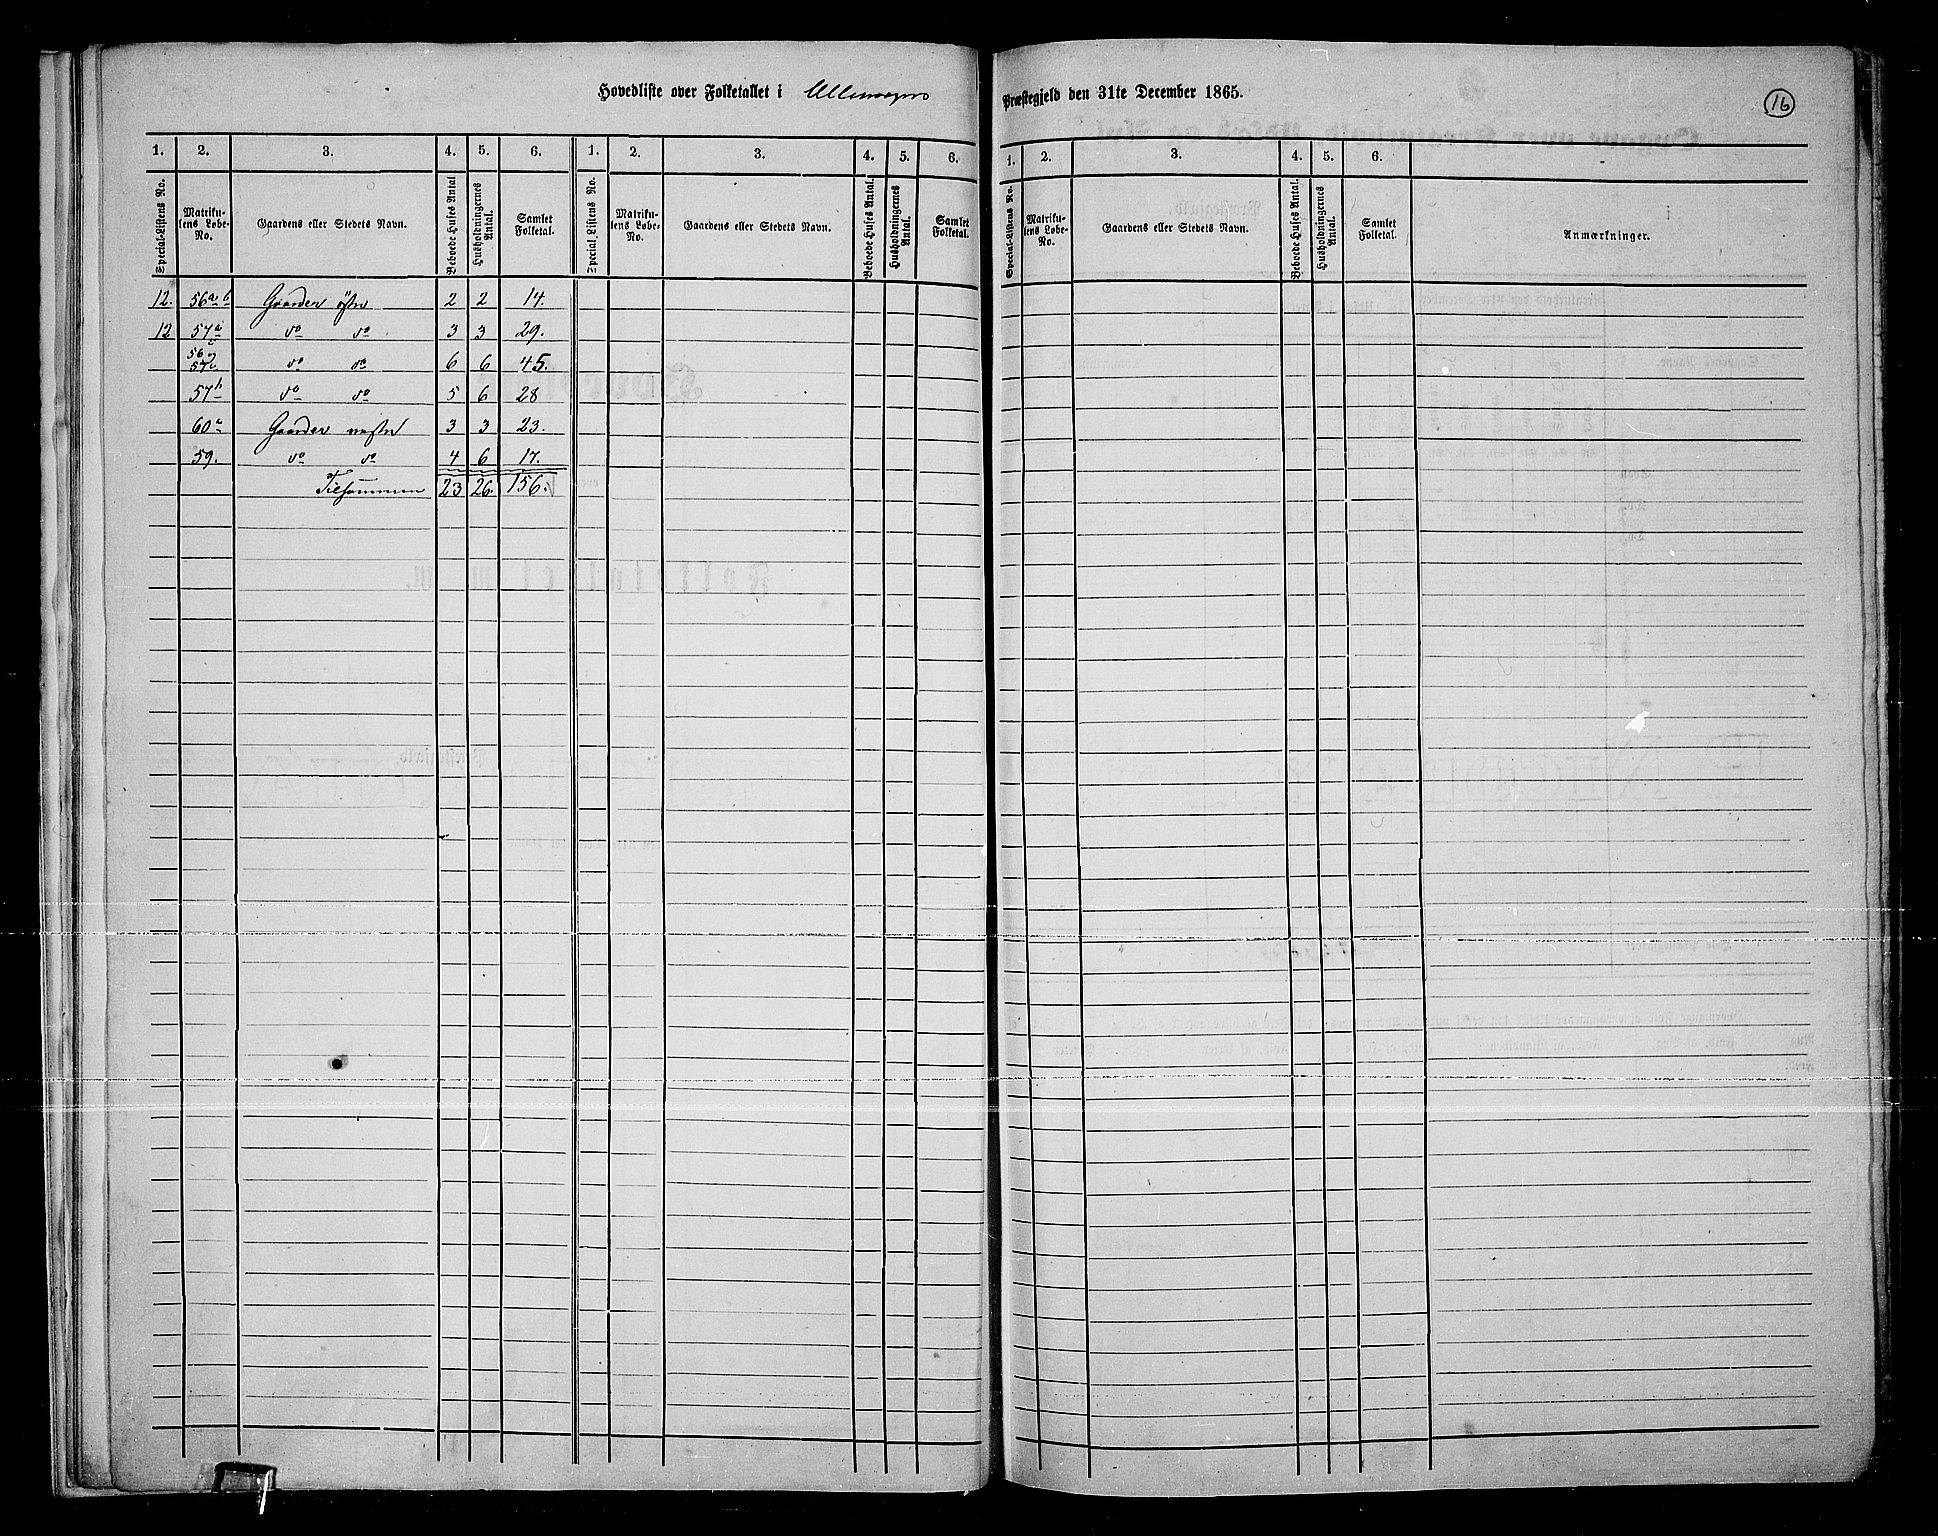 Hovedliste over Folketallet i Ullensagers Præstegjeld den 31te December 1865.
16
1. 2. 3. 4. 5. 6. 1. 2. 3. 4. 5. 6. 1. 2. 3. 4. 5. 6.
Special-Listens No. Matrikulens Løbe-No. Gaardens eller Stedets Navn. Beboede Huses Antal Husholdningernes Antal. Samlet Folketal. Special-Listens No. Matrikulens Løbe-No. Gaardens eller Stedets Navn. Beboede Huses Antal. Husholdningernes Antal. Samlet Folketal. Special-Listens No. Matrikulens Løbe-No. Gaardens eller Stedets Navn. Beboede Huses Antal. Husholdningernes Antal. Samlet Folketal. Anmærkninger.
12. 56 a b Gaarder østre 2 2 14.
12 57 a do do 3 3 29.
56 57 do do 6 6 45.
57 b do do 5 6 28
60 a Gaarder vestre 3 3 23.
59. do do 4 6 17.
Tilsammen 23 26. 156.